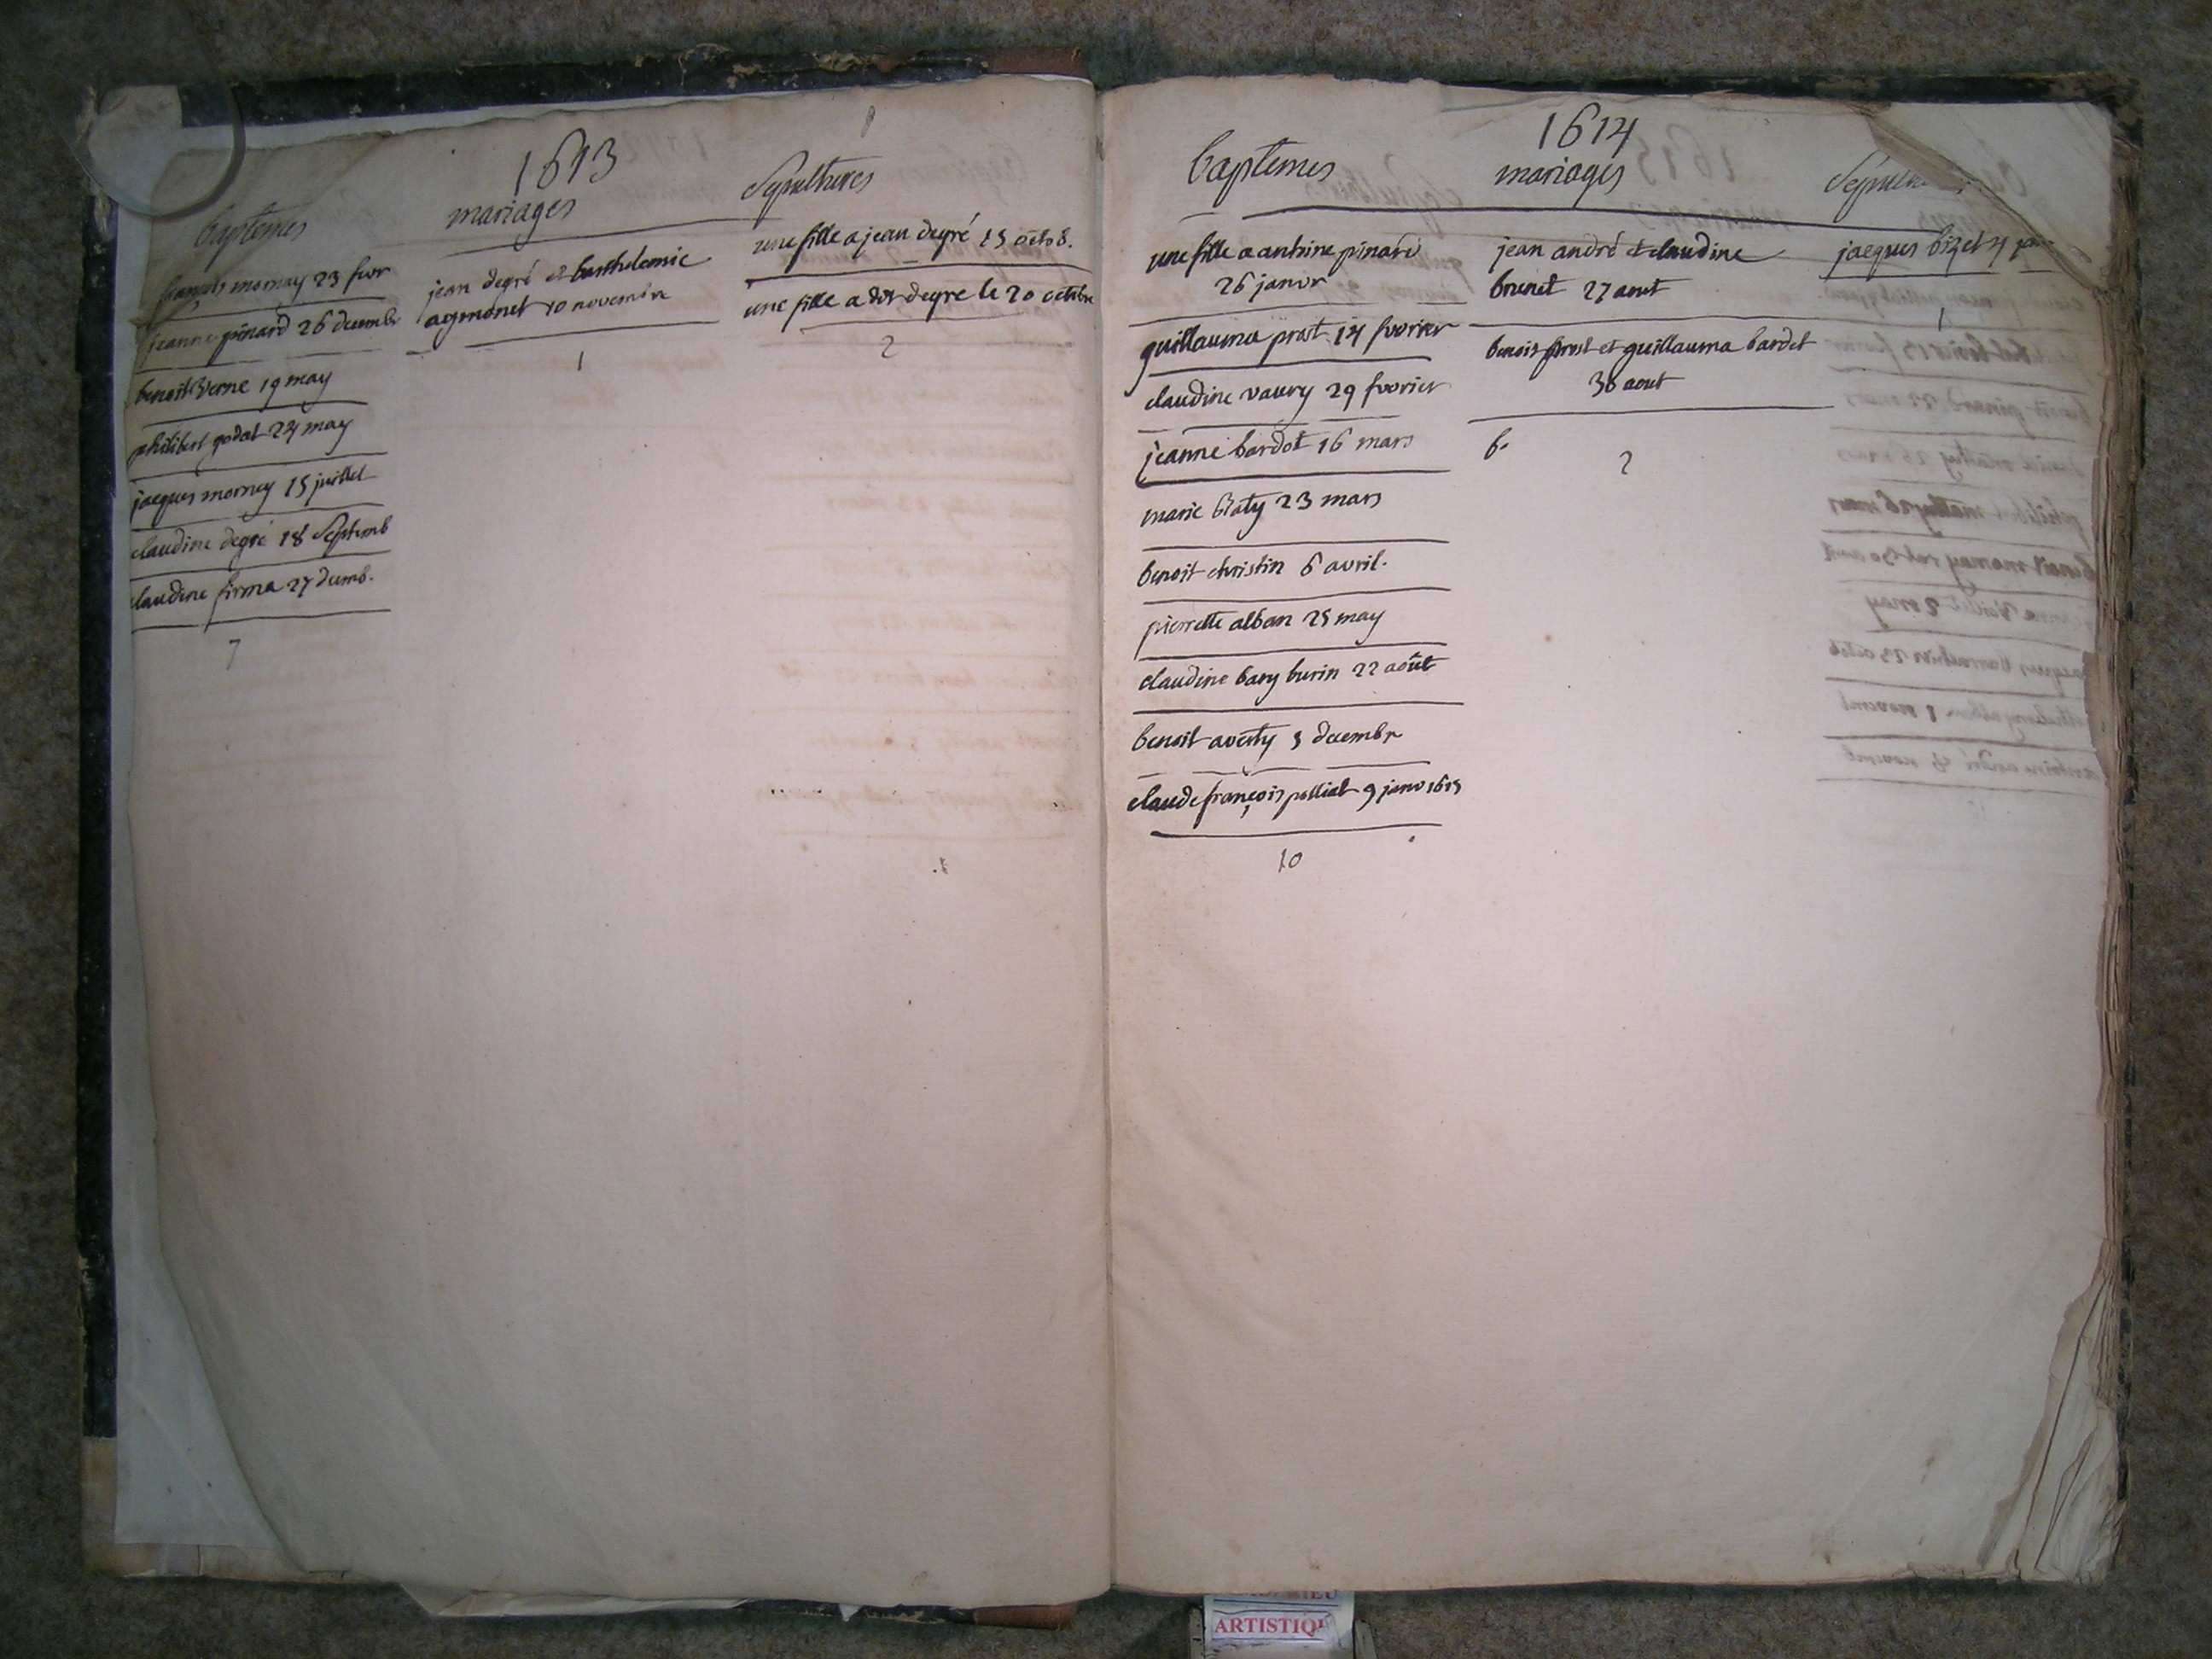 1613
baptemes
françois mornay 23 fevr
jeanne pinard 26 decembr
benoit Verne 19 may
philibert godat 24 may
jacques mornay 15 juillet
claudine degré 18 Septemb
claudine firma 27 decemb.
7
mariages
jean degré et barthelemie
agemonet 10 novembre
1
Sepultures
une fille a jean degré 15 octo 8.
une fille a degre le 20 octobre
2
1614
baptemes
une fille a antoine pinard
26 janvr
guillauma prost 14 fevrier
claudine vaury 29 fevrier
jeanne bardot 16 mars
marie Biaty 23 mars
benoit christin 6 avril.
pierrette alban 25 may
claudine bary burin 22 août
benoit averty 3 decembr
claude françois polliat 9 janv 1615
10
mariages
jean andré et claudine
brunet 27 aout
benoit prost et guillauma bardet
30 aout
b.
2
jacques bizet 4
1
ARTISTIQ